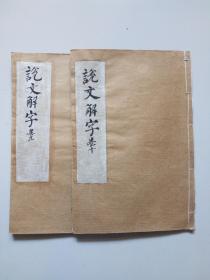 說文解字 卷九
說文解字 卷十